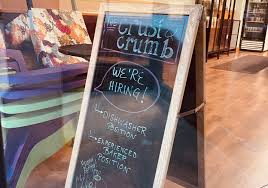 THE
Crust &
Crumb
WE'RE
HIRING!
DISHWASHER
POSITION
EXPERIENCED
BAKER
POSITION